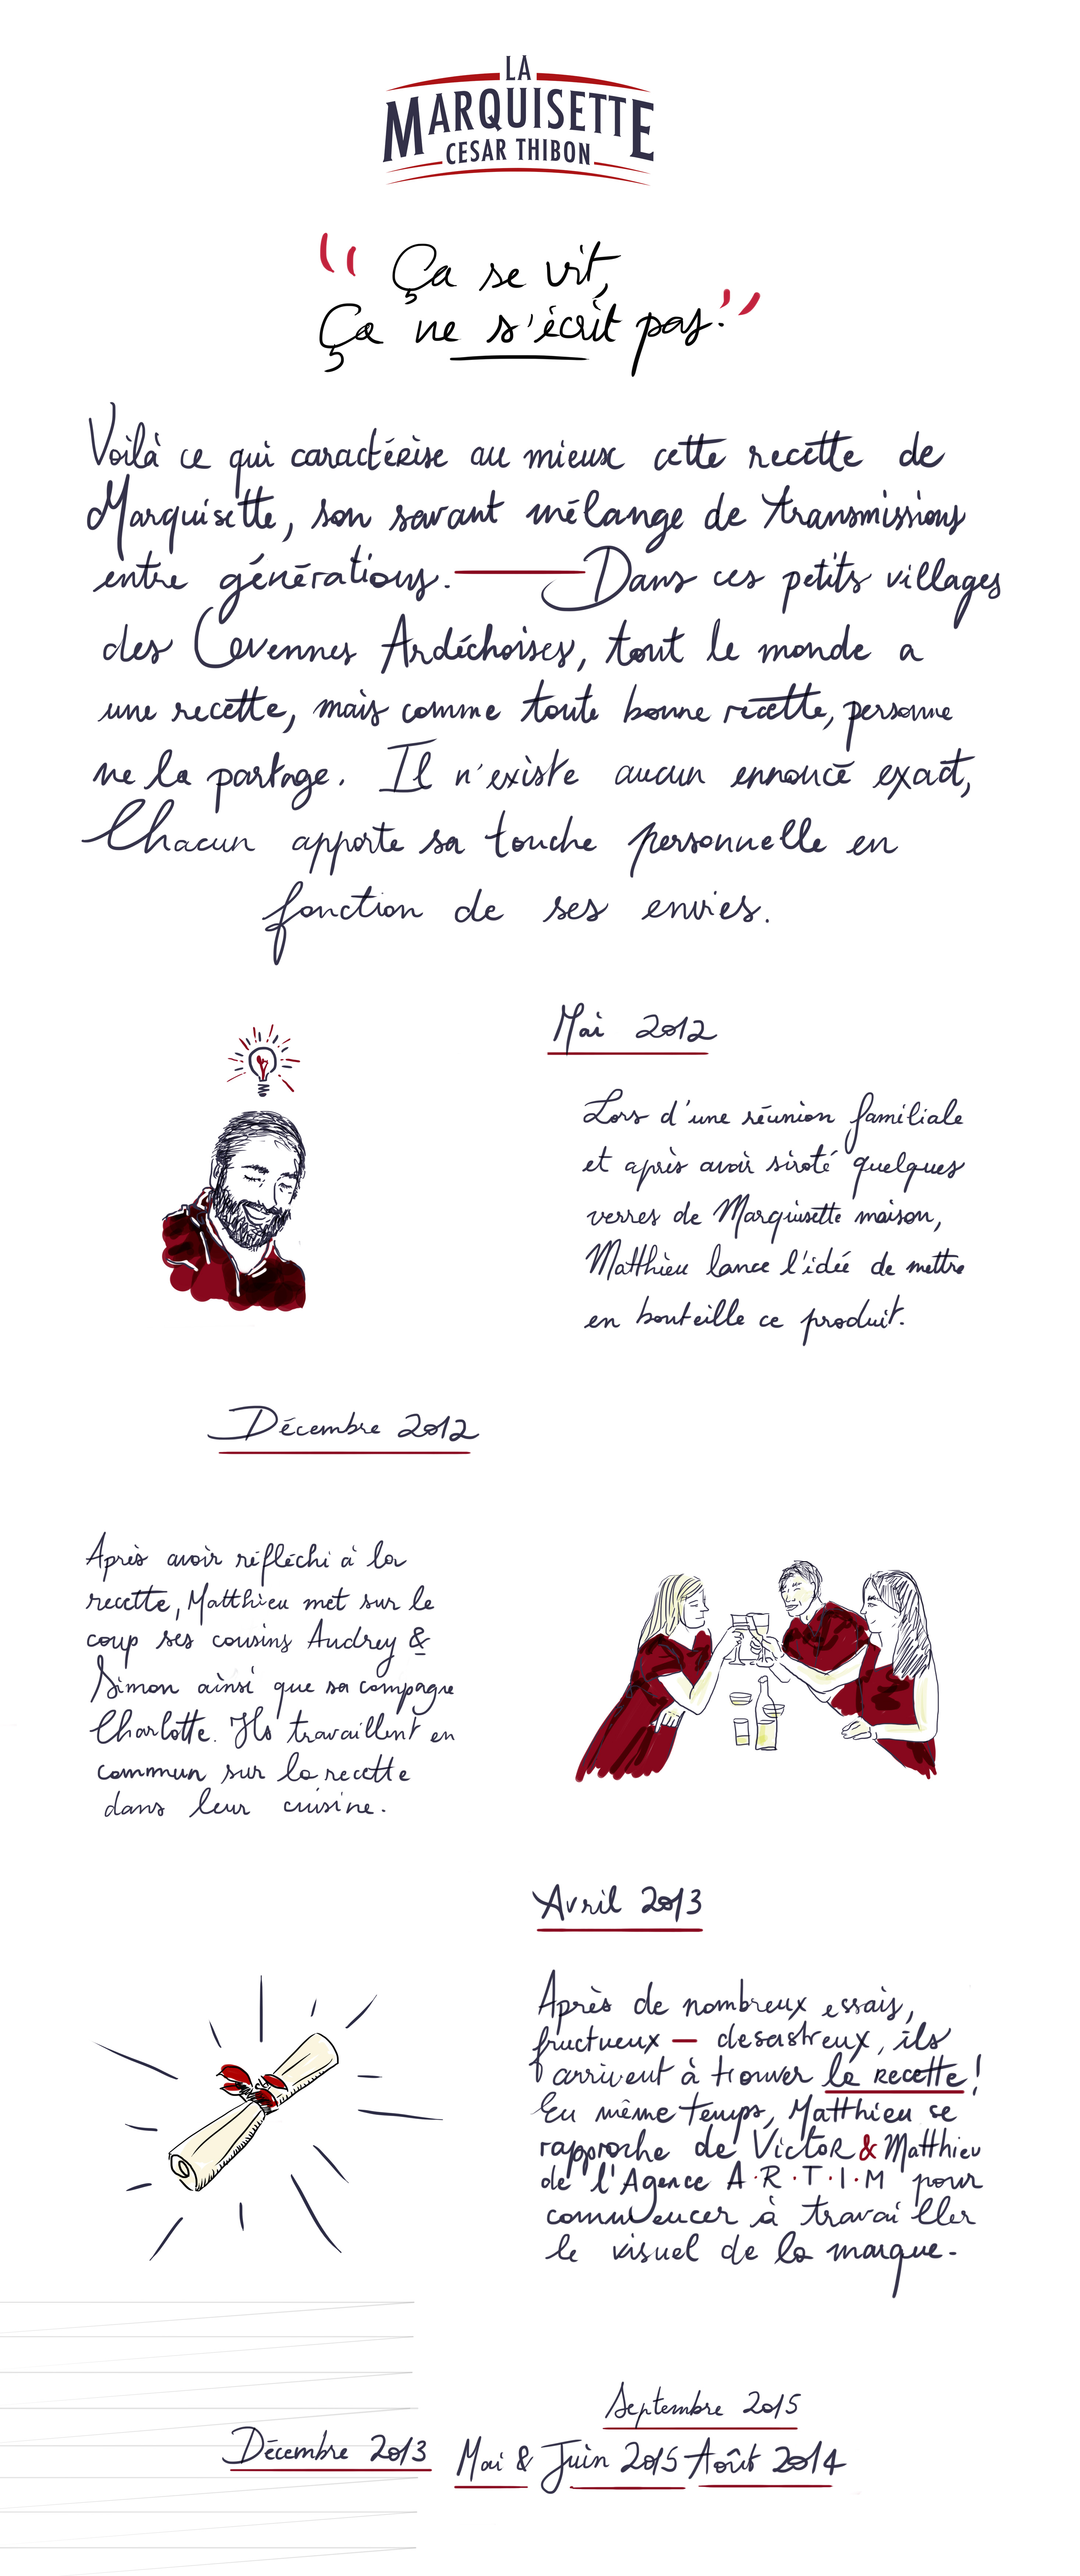 LA
MARQUISETTE
CESAR THIBON
" Ça se vit,
Ça ne s'écrit pas. "
Voilà ce qui caractérise au mieux cette recette de
Marquisette, son savant mélange de transmissions
entre générations. — Dans ces petits villages
des Cevennes Ardéchoises, tout le monde a
une recette, mais comme toute bonne recette, personne
ne la partage. Il n'existe aucun ennoncé exact,
Chacun apporte sa touche personnelle en
fonction de ses envies.
Mai 2012
Lors d'une réunion familiale
et après avoir siroté quelques
verres de Marquisette maison,
Matthieu lance l'idée de mettre
en bouteille ce produit.
Décembre 2012
Après avoir réfléchi à la
recette, Matthieu met sur le
coup ses cousins Audrey &
Simon ainsi que sa compagne
Charlotte. Ils travaillent en
commun sur la recette
dans leur cuisine.
Avril 2013
Après de nombreux essais,
fructueux — desastreux, ils
arrivent à trouver la recette !
En même temps, Matthieu se
rapproche de Victor & Matthieu
de l'Agence A·R·T·I·M pour
commencer à travailler
le visuel de la marque.
Septembre 2015
Décembre 2013 Mai & Juin 2015 Août 2014